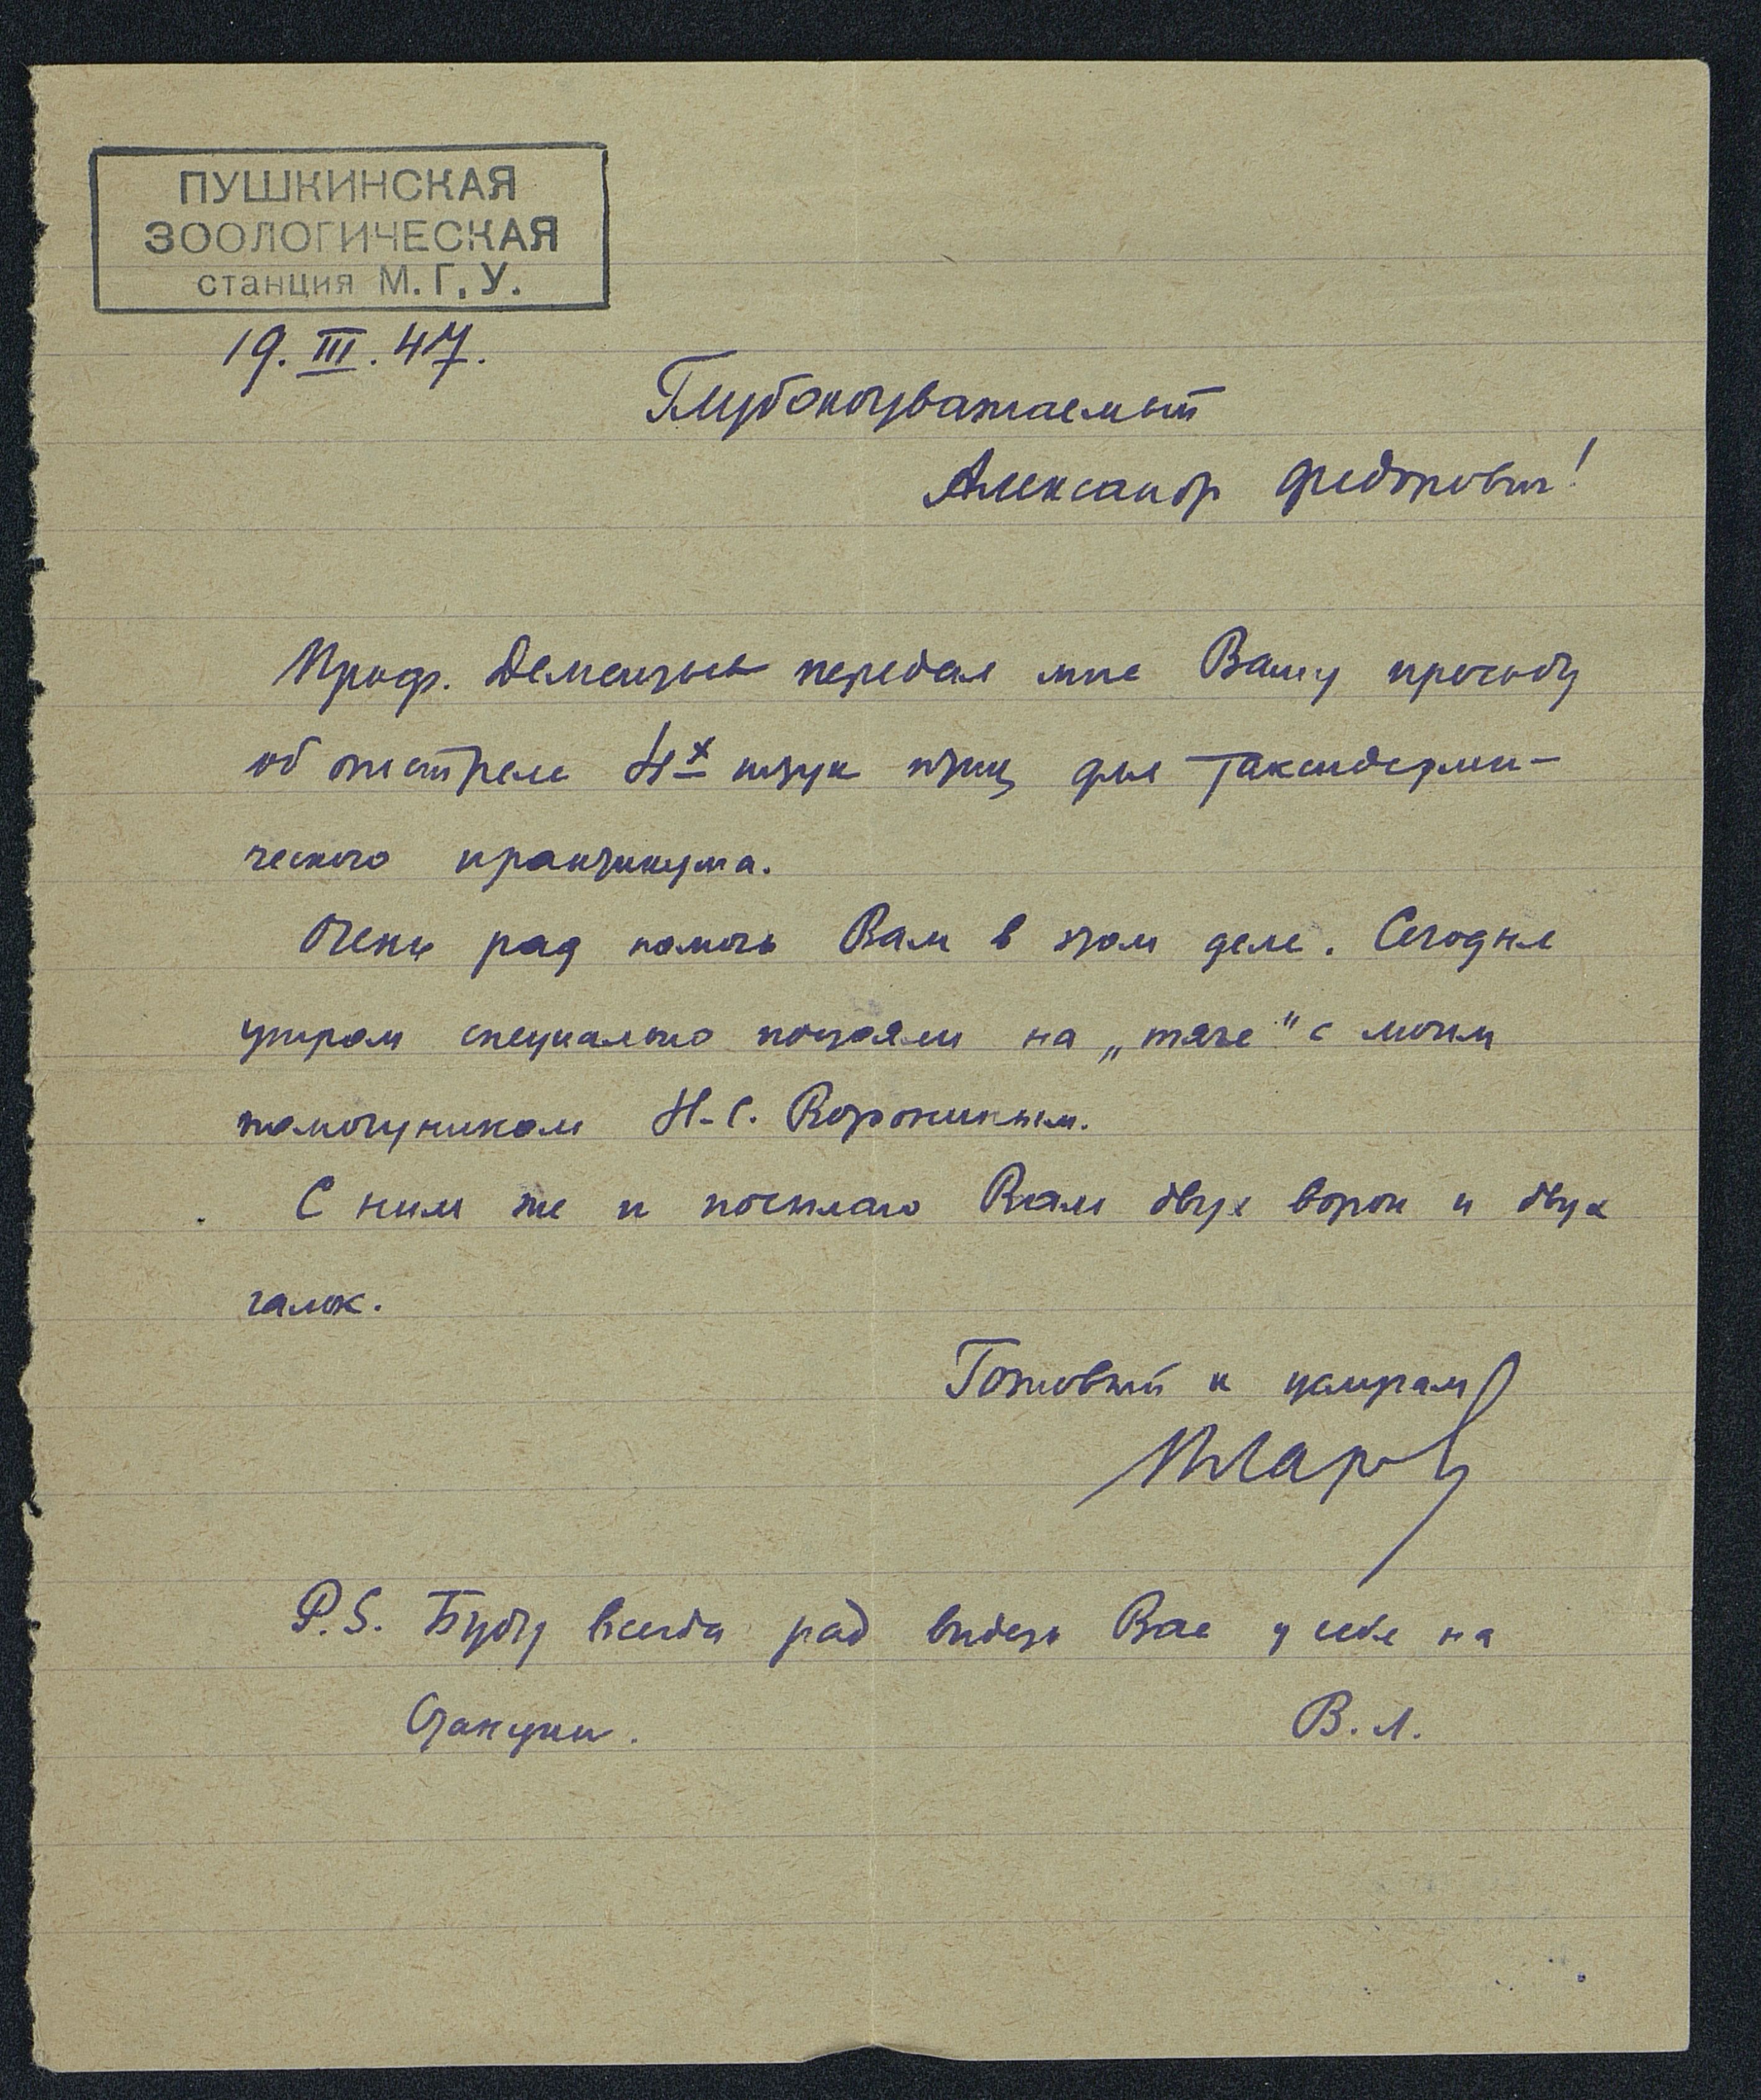 ПУШКИНСКАЯ
ЗООЛОГИЧЕСКАЯ
станция М.Г.У.
19.III.47.
Глубокоуважаемый
Александр Федорович!
Проф. Дементьев передал мне Вашу просьбу
об отстреле 4х штук птиц для таксидерми-
ческого практикума.
Очень рад помочь Вам в этом деле. Сегодня
утром специально постояли на „тяге" с моим
помощником Н.С. Ворониным.
С ним же и посылаю Вам двух ворон и двух
галок.
Готовый к услугам
P.S. Буду всегда рад видеть Вас у себе на
Станции.
В.Л.